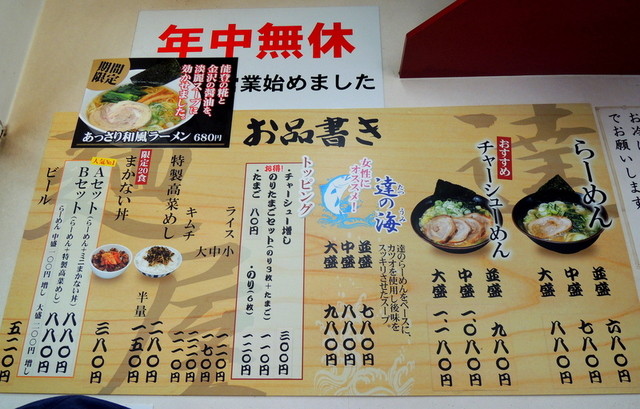 年中無休
業始めました
期間
限定
能登の糀と
金沢の醤油を、
淡麗スープに
効かせました。
あっさり和風ラーメン 680円
お品書き
らーめん
並盛 六八〇円
中盛 七八〇円
大盛 八八〇円
おすすめ
チャーシューめん
並盛 九八〇円
中盛 一〇八〇円
大盛 一一八〇円
女性に
オススメ!
達の海
たつ うみ
達のらーめんをベースに、
カツオを使用し後味を
スッキリさせたスープ。
並盛 七八〇円
中盛 八八〇円
大盛 九八〇円
トッピング
・チャーシュー増し 三〇〇円
お得!
のりたまごセット(のり3枚+たまご)
・たまご 八〇円
・のり(6枚)
ライス
小
中
大
キムチ
特製高菜めし
半量
限定20食
まかない丼 三八〇円
人気No.1
Aセット(らーめん+ミニまかない丼) 八八〇円
Bセット(らーめん+特製高菜めし) 八八〇円
(らーめん 中盛一〇〇円増し 大盛二〇〇円増し)
ビール 五一〇円
でお願いします